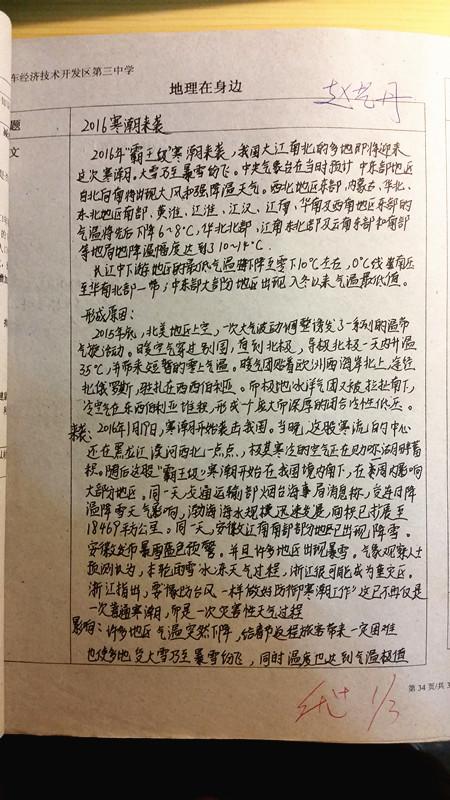 车经济技术开发区第三中学
地理在身边
赵艺丹
题
2016寒潮来袭
文
2016年"霸王级"寒潮来袭,我国大江南北的多地即将迎来
这次寒潮。大雪乃至暴雪纷飞。中央气象台在当时预计 中东部地区
自北向南将出现大风和强降温天气。西北地区东部、内蒙古、华北、
东北地区南部、黄淮、江淮、江汉、江南、华南及西南地区东部的
气温将先后下降6~8℃,华北北部、江南东北部及云南东部和南部
等地局地降温幅度达到了10~14℃.
长江中下游地区的最低气温将下降至零下10℃左右,0℃线将南压
至华南北部一带;中东部大部分地区出现入冬以来气温最低值。
形成原因:
2015年底,北美地区上空,一次大气波动调整诱发了一系列的温带
气旋活动。暖空气穿过别国,直到北极,导极北极一天内升温
35℃,并带来短暂的零上气温。暖气团贴着欧洲西海岸北上,途经
北俄罗斯,驻扎在西西伯利亚。而极地冰洋气团又被拉扯南下,
冷空气在东西伯利亚堆积,形成十庞大而深厚的闭合冷性低压。
来袭:2016年1月19日,寒潮开始袭击我国。当晚,这股寒流的中心
还在黑龙江漠河西北一点点,极其寒冷的空气正在贝加尔湖畔蓄
积。随后这股"霸王级"寒潮开始在我国境内南下,在美国内影响
大部分地区。同一天,交通运输部烟台海事局消息称,受连日降
温降雪天气影响,渤海海水规模迅速发展,面积已扩展至
18469平方公里。同一天,安徽江南南部部分地区已出现降雪。
安徽发布暴雪蓝色预警。并且许多地区出现暴雪。气象观察人士
预测认为,本轮雨雪冰冻天气过程,浙江很可能成为重灾区。
浙江指出,要像防台风一样做好防御寒潮工作"这已不再仅是
一次普通寒潮,而是一次灾害性天气过程
影响:许多地区气温突然下降,给春节返程旅客带来一定困难
也使多地受大雪乃至暴雪纷飞,同时温度也达到气温极值
第 34 页/共 3
1/3